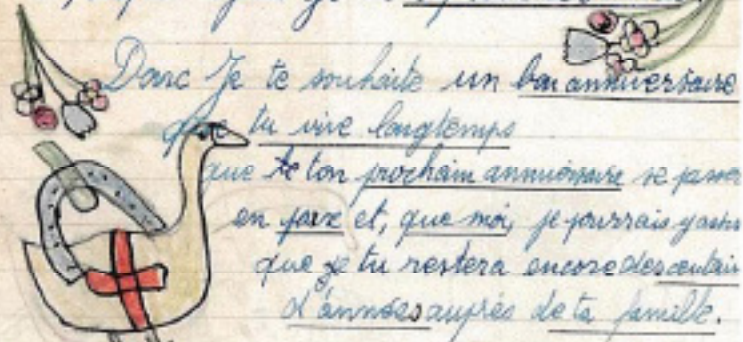 Donc Je te souhaite un bon anniversaire
que tu vive longtemps
que te ton prochain anniversaire se passe
en paix et, que moi, je pourrais y
que je tu restera encore des centain
d'années auprès de ta famille.